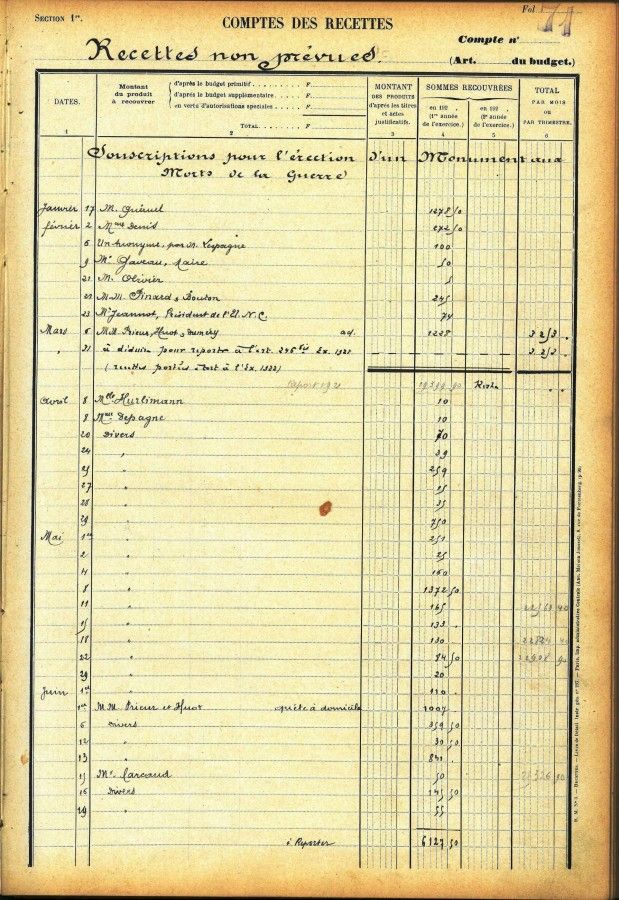 SECTION 1re. COMPTES DES RECETTES Fol. 71
Recettes non prévues. Compte n°
(Art. du budget.)
DATES. Montant du produit à recouvrer d'après le budget primitif F
d'après le budget supplémentaire F
en vertu d'autorisations spéciales F
TOTAL F
MONTANT DES PRODUITS d'après les titres et actes justificatifs.
SOMMES RECOUVRÉES
en 192 (1re année de l'exercice.) en 192 (2e année de l'exercice.)
TOTAL PAR MOIS OU PAR TRIMESTRE.
1 2 3 4 5 6
Souscriptions pour l'érection d'un Monument aux
Morts de la Guerre
Janvier 17 M. 1278 50
février 2 Mme Denis 272 50
6 Un anonyme, par M. Lespagne 100
9 Mr Gaveau, Maire 50
21 M. Olivier 5
21 M.M. Pinard & Bouton 245
23 Mr Jeannot, Président de l'U.N.C. 74
Mars 6 M.M. Prieur, Huot & 1228 3 253 .
31 à déduire pour report à l'art. Ex. 1921 3 253 .
(recettes portées à tort à l'Ex. 1922)
Report 1921 19399 90
Avril 8 Mlle Hurlimann 10
8 Mme Depagne 10
20 Divers 70
24 " 39
25 " 259
27 " 15
28 " 35
29 " 750
Mai 1er " 251
2 " 25
4 " 160
8 " 1372 50
11 " 165 22563 40
15 " 133
18 " 130 22824 40
22 " 84 50 22908 90
29 " 20
Juin 1er " 110
1er M.M. Prieur et Huot quête à domicile 1007
6 Divers 359 50
12 " 30 50
13 " 841
15 Mr Carcaud 50 90
16 Divers 145 50
29 " 55
à Reporter 6127 50